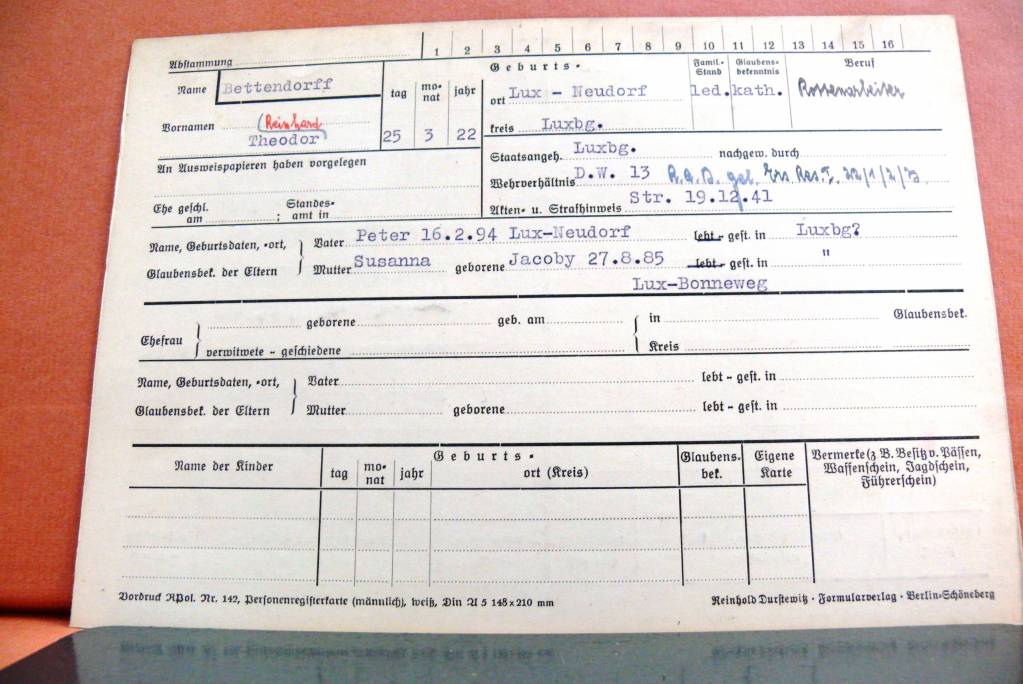 Abstammung 1 2 3 4 5 6 7 8 9 10 11 12 13 14 15 16
Name Bettendorff
Vornamen (Reinhard)
Theodor
tag monat jahr
25 3 22
Geburts-
ort Lux - Neudorf
kreis Luxbg.
Famil.-Stand
led.
Glaubens-bekenntnis
kath.
Beruf
Rosenarbeiter
An Ausweispapieren haben vorgelegen
Staatsangeh. Luxbg. nachgew. durch
Wehrverhältnis D.W. 13 R.A.D. gel. Ers. Res. I. 22/1/2/3
Akten- u. Strafhinweis Str. 19.12.41
Ehe geschl. am ; Standes-amt in
Name, Geburtsdaten, -ort, Glaubensbek. der Eltern
Vater Peter 16.2.94 Lux-Neudorf lebt- gest. in Luxbg?
Mutter Susanna geborene Jacoby 27.8.85 lebt- gest. in "
Lux-Bonneweg
Ehefrau
geborene geb. am in Glaubensbek.
verwitwete - geschiedene Kreis
Name, Geburtsdaten, -ort, Glaubensbek. der Eltern
Vater lebt - gest. in
Mutter geborene lebt - gest. in
Name der Kinder tag mo-nat jahr Geburts-ort (Kreis) Glaubens-bek. Eigene Karte Vermerke (z B. Besitz v. Pässen, Waffenschein, Jagdschein, Führerschein)
Vordruck RPol. Nr. 142, Personenregisterkarte (männlich), weiß, Din A 5 148 x 210 mm
Reinhold Durstewitz · Formularverlag · Berlin-Schöneberg